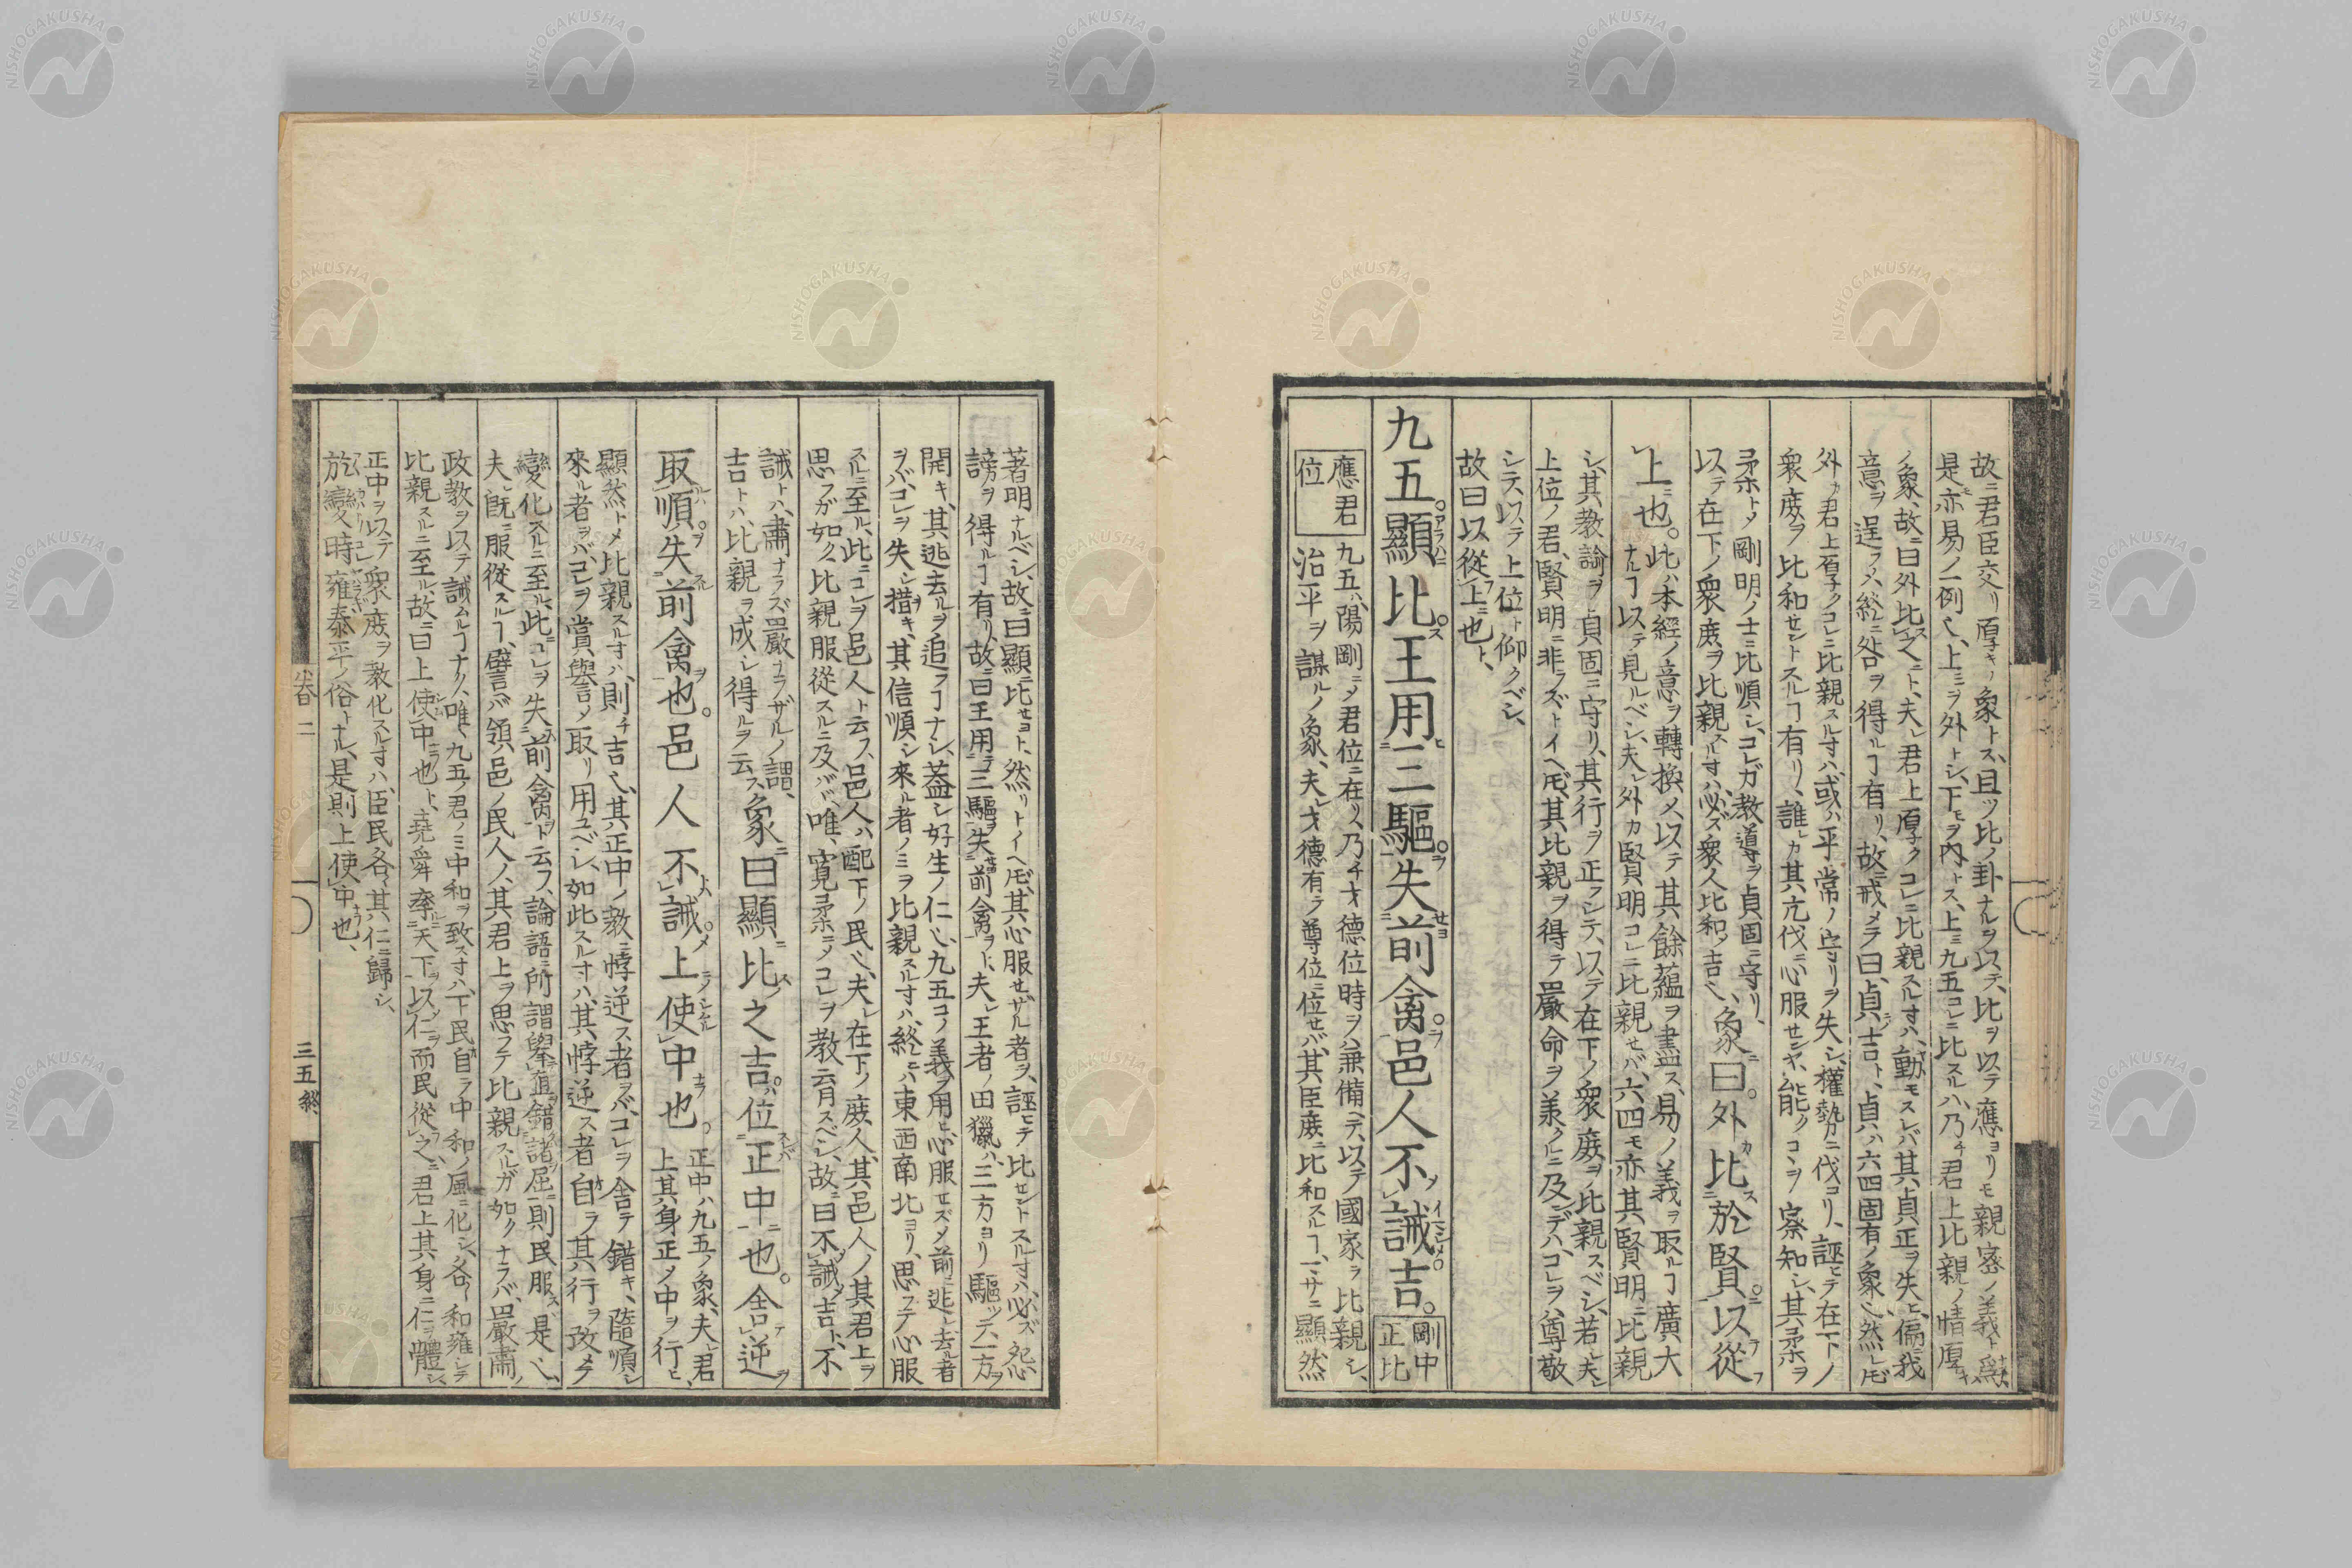 故ニ君臣交リ厚キノ象トス、且ツ比ノ卦ナルヲ以テ、比ヲ以テ應ヨリモ親密ノ義ト爲
是亦易ノ一例也、上ミヲ外トシ、下モヲ内トス、上ミ九五コレニ比スルハ、乃チ君上比親ノ情厚キ
ノ象、故ニ曰外比之ニト、夫レ君上厚クコレニ比親スル寸ハ、動モスレバ其貞正ヲ失ヒ、偏ニ我
意ヲ逞フメ、終ニ咎ヲ得ルヿ有リ、故ニ戒メテ曰、貞シ吉ト、貞ハ六四固有ノ象也、然レ𪜈
外カ君上厚クコレニ比親スル寸ハ、或ハ平常ノ守リヲ失シ、權勢ニ伐コリ、誣ヒテ在下ノ
衆庶ヲ比和セントスルヿ有リ、誰レカ其亢伐ニ心服センヤ、能クコヽヲ察知シ、其柔ヲ
柔トメ剛明ノ士ニ比順シ、コレガ教導ヲ貞固ニ守リ、
以テ在下ノ衆庶ヲ比親スル寸ハ、必ズ衆人比和メ吉也、象ニ曰。外カ比スルハ於賢ニ。以テ從フ
レ上ニ也。此ハ本經ノ意ヲ轉換メ、以テ其餘蘊ヲ盡ス、易ノ義ヲ取ルヿ廣大
ナルヿ以テ見ルベシ、夫レ外カ賢明コレニ比親セバ、六四モ亦其賢明ニ比親
シ、其教諭ヲ貞固ニ守リ、其行ヲ正フシテ、以テ在下ノ衆庶ヲ比親スベシ、若シ夫レ
上位ノ君、賢明ニ非ズトイヘ𪜈、其比親ヲ得テ嚴命ヲ羕クルニ及ンデハ、コレヲ尊敬
シテ以テ上位ト仰クベシ、
故曰以從フレ上ニ也ト、
九五。顯アラハニ比ス。王用ヒ三驅ヲ。失セヨ前禽ヲ。邑人不ノ誡イマシメ。吉。剛中正比
應君位 九五ハ陽剛ニメ君位ニ在リ、乃チ才德位時ヲ兼備ヘテ、以テ國家ヲ比親シ、
治平ヲ謀ルノ象、夫レ才德有テ尊位ニ位セバ、其臣庶ニ比和スルヿ、マサニ顯然
著明ナルベシ、故ニ曰顯ニ比セヨト、然リトイヘ𪜈、其心服セザル者ヲ、誣ヒテ比セントスル寸ハ、必ズ怨
謗ヲ得ルヿ有リ、故ニ曰王用テ三驅ヲ失セヨ前禽ヲト、夫レ王者ノ田獵ハ、三方ヨリ驅ッテ、一方ヲ
開キ、其逃去ルヲ追フヿナシ、蓋シ好生ノ仁也、九五コノ義ヲ用ヒ、心服セズメ前ニ逃レ去ル者
ヲバ、コレヲ失シ措キ、其信順シ來ル者ノミヲ比親スル寸ハ、終ニハ東西南北ヨリ、思フテ心服
スルニ至ル、此ニコレヲ邑人ト云フ、邑人ハ配下ノ民也、夫レ在下ノ庶人、其邑人ノ其君上ヲ
思フガ如ク、比親服從スルニ及バヾ、唯、寬柔ニメコレヲ教育スベシ、故ニ曰不レ誡メ吉ト、不
誡トハ、肅ナラズ嚴ナラザルノ謂、
吉トハ、比親ヲ成シ得ルヲ云ス、象ニ曰顯ニ比スノ之吉ハ。位正スレバ中ニ也。舍テ逆ヲ
取ルハ順ヲ。失スル前禽ヲ也。邑人不トハ誡メ。上ノ使シムル中ナラ也。正中ハ九五ノ象、夫レ君
上其身正メ中ヲ行ヒ、
顯然トメ比親スル寸ハ、則チ吉也、其正中ノ教ニ悖逆ス者ヲバ、コレヲ舍テ錯キ、隨順シ
來ル者ヲバ、コレヲ賞譽メ取リ用ユベシ、如此スル寸ハ、其悖逆ス者自ラ其行ヲ改メテ
變化スルニ至ル、此ニコレヲ失前禽ヲト云フ、論語ニ所謂擧直錯諸屈ニ則民服スハ是也、
夫レ既ニ服從スルヿ、譬ヘバ領邑ノ民人ノ、其君上ヲ思フテ比親スルガ如クナラバ、嚴肅ノ
政教ヲ以テ誡ムルヿナク、唯、九五ノ君ノミ中和ヲ致ス寸ハ、下民自ラ中和ノ風ニ化シ、各〻和雍シテ
比親スルニ至ル、故ニ曰上使中ナラ也ト、堯舜率ルニ天下ヲ以仁ヲ而民從フ之ニ、君上其身ニ仁ヲ體シ、
正中ヲ以テ衆庶ヲ教化スル寸ハ、臣民各〻其仁ニ歸シ、
於變時雍泰平ノ俗トナル、是則上使レ中ナラ也、
卷二
三五終